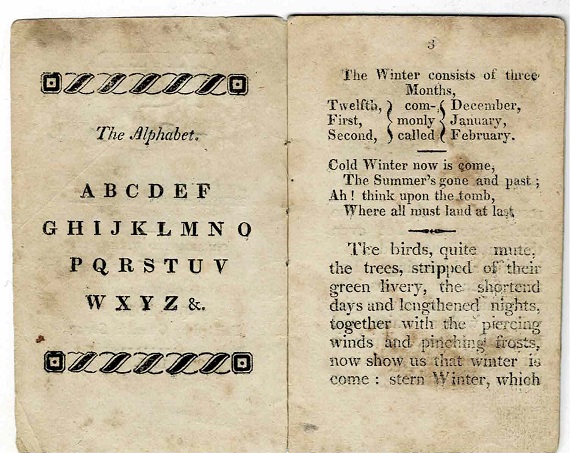 The Alphabet.
A B C D E F
G H I J K L M N O
P Q R S T U V
W X Y Z &.
3
The Winter consists of three
Months,
Twelfth, } com- { December,
First, } monly { January,
Second, } called { February.
Cold Winter now is come,
The Summer's gone and past;
Ah! think upon the tomb,
Where all must land at last.
The birds, quite mute,
the trees, stripped of their
green livery, the shortend
days and lengthened nights,
together with the piercing
winds and pinching frosts,
now show us that winter is
come: stern Winter, which